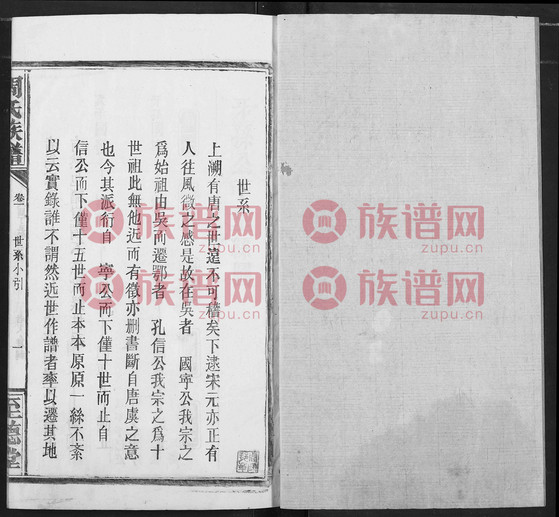 世系
上溯有唐之世邈不可稽矣下逮宋元亦止有
人往風微之感是故在吳者 國寧公我宗之
爲始祖由吳而遷鄂者 孔信公我宗之爲十
世祖此無他近而有徵亦删書斷自唐虞之意
也今其派衍自 寧公而下僅十世而止自
信公而下僅十五世而止本本原原一絲不紊
以云實錄誰不謂然近世作譜者率以遷其地
周氏族譜
卷
世系小引
一
至德堂
族谱网
zupu.cn
族谱网
zupu.cn
族谱网
zupu.cn
族谱网
zupu.cn